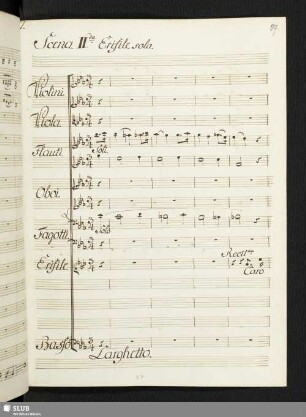 Scena II.da Erifile sola.
Violini.
Viola.
Flauti.
Soli
Oboi.
Fagotti.
Solo
Erifile
Recit.vo
Caro
Basso
Larghetto.
SLUB